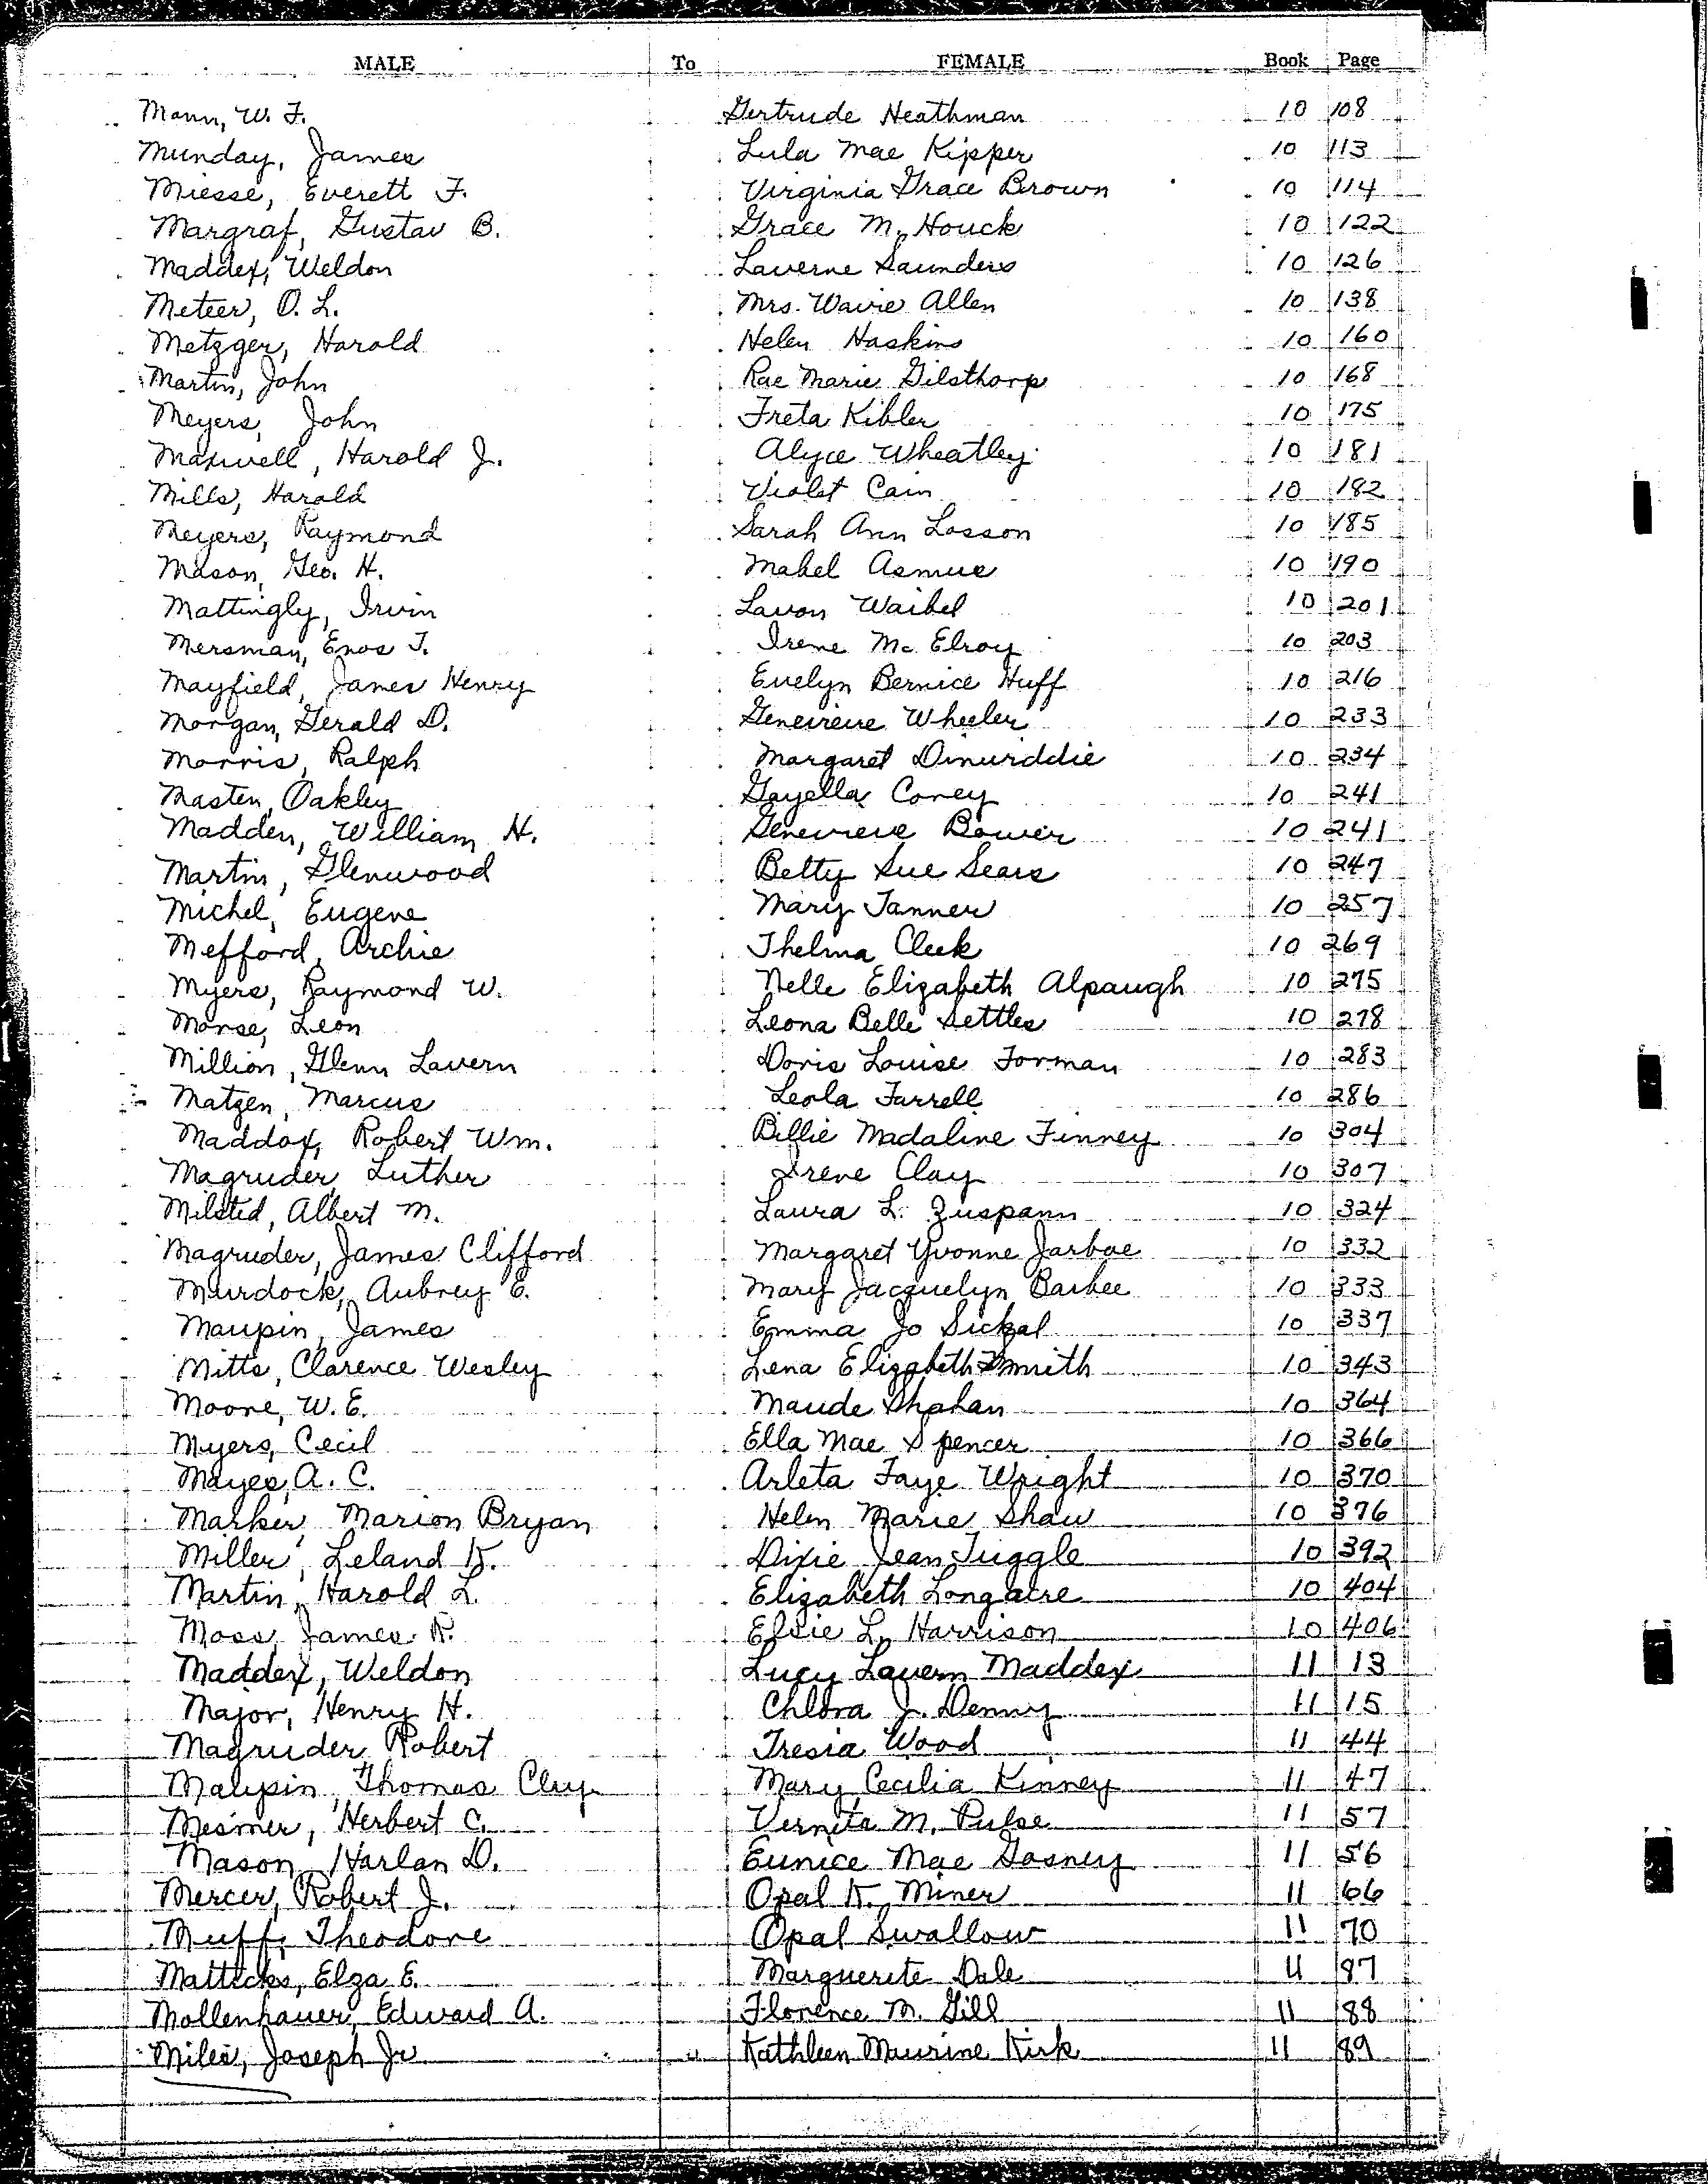 MALE To FEMALE Book Page
Mann, W. F. Gertrude Heathman 10 108
Munday, James Lula Mae Kipper 10 113
Miesse, Everett F. Virginia Grace Brown 10 114
Margraf, Gustav B. Grace M. Houck 10 122
Maddex, Weldon Laverne Saunders 10 126
Meteer, O. L. Mrs. Wavie Allen 10 138
Metzger, Harold Helen Haskins 10 160
Martin, John Rae Marie Gilsthorp 10 168
Meyers, John Freta Kibler 10 175
Maxwell, Harold J. Alyce Wheatley 10 181
Mills, Harold Violet Cain 10 182
Meyers, Raymond Sarah Ann Losson 10 185
Mason, Geo. H. Mabel Asmus 10 190
Mattingly, Irvin Lavon Waibel 10 201
Mersman, Enos T. Irene Mc Elroy 10 203
Mayfield, James Henry Evelyn Bernice Huff 10 216
Morgan, Gerald D. Genevieve Wheeler 10 233
Morris, Ralph Margaret Dinwiddie 10 234
Masten, Oakley Gayella Corey 10 241
Madden, William H. Genevieve Bower 10 241
Martin, Glenwood Betty Sue Sears 10 247
Michel, Eugene Mary Tanner 10 257
Mefford, Archie Thelma Cleek 10 269
Myers, Raymond W. Nelle Elizabeth Alpaugh 10 275
Morse, Leon Leona Belle Settles 10 278
Million, Glenn Lavern Doris Louise Forman 10 283
Matzen, Marcus Leola Farrell 10 286
Maddox, Robert Wm. Billie Madaline Finney 10 304
Magruder, Luther Irene Clay 10 307
Milsted, Albert M. Laura L. Zuspann 10 324
Magruder, James Clifford Margaret Yvonne Jarboe 10 332
Murdock, Aubrey E. Mary Jacquelyn Barbee 10 333
Maupin, James Emma Jo Sickal 10 337
Mitts, Clarence Wesley Lena Elizabeth Smith 10 343
Moore, W. E. Maude Shahan 10 364
Myers, Cecil Ella Mae Spencer 10 366
Mayes, A. C. Arleta Faye Wright 10 370
Marker, Marion Bryan Helen Marie Shaw 10 376
Miller, Leland K. Dixie Jean Tuggle 10 392
Martin, Harold L. Elizabeth Longacre 10 404
Moss, James R. Elsie L. Harrison 10 406
Maddex, Weldon Lucy Lavern Maddex 11 13
Major, Henry H. Chlora J. Denny 11 15
Magruder, Robert Tresia Wood 11 44
Maupin, Thomas Clay Mary Cecilia Kinney 11 47
Mesmer, Herbert C. Vernita M. Pulse 11 57
Mason, Harlan D. Eunice Mae Gosney 11 56
Mercer, Robert J. Opal K. Miner 11 66
Muff, Theodore Opal Swallow 11 70
Matticks, Elza E. Marguerite Dale 11 87
Mollenhauer, Edward A. Florence M. Gill 11 88
Miles, Joseph Jr " Kathleen Maurine Kirk 11 89